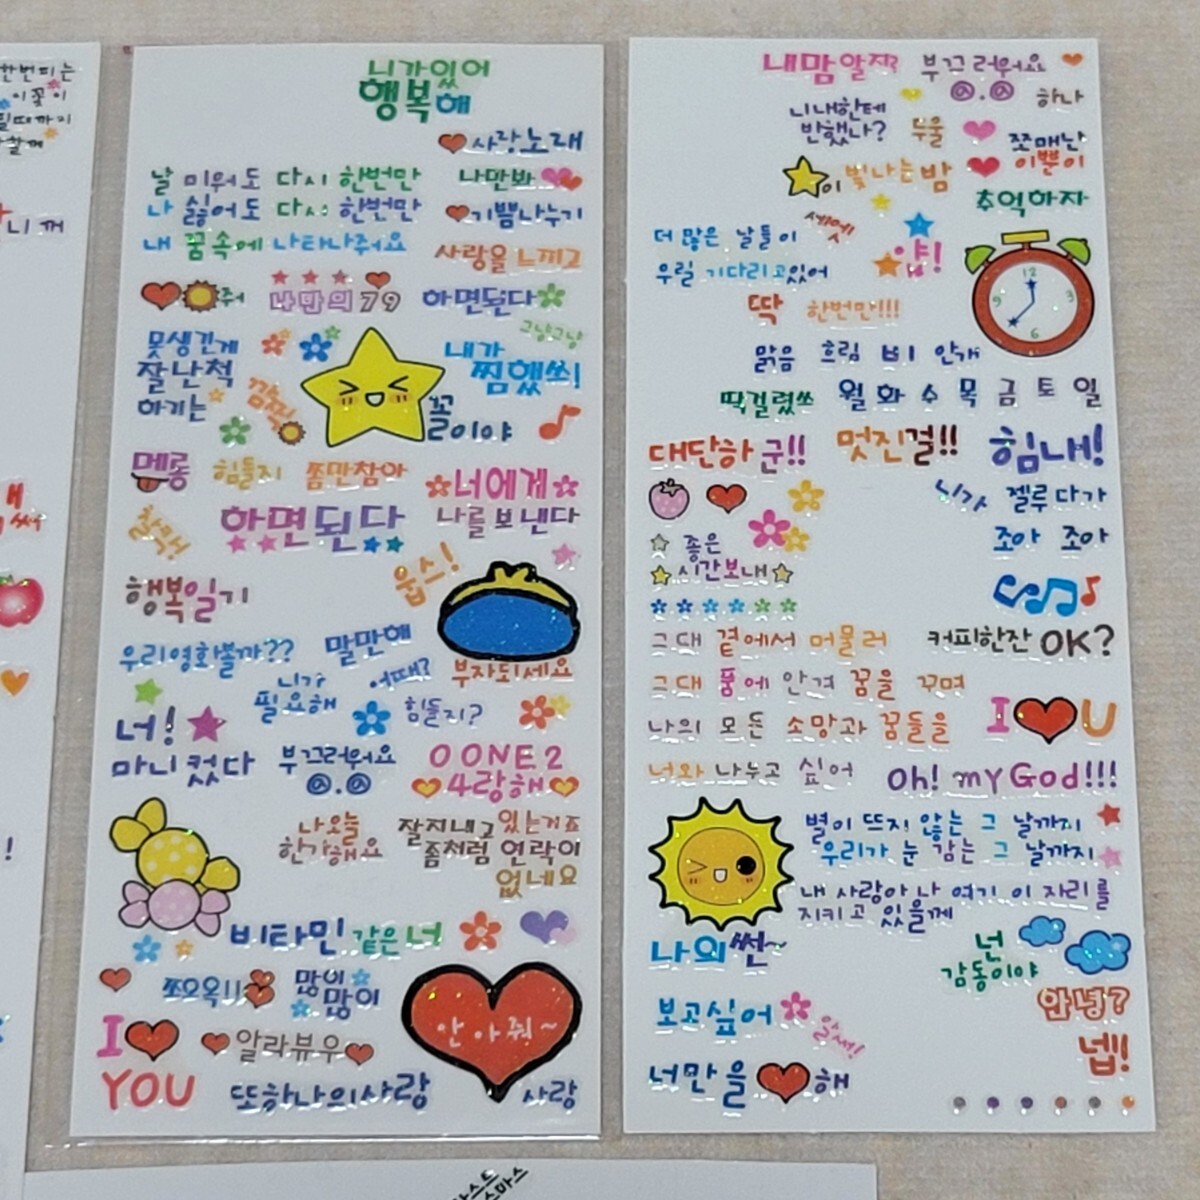 한번피는
이꽃이
필때까지
니께
니가있어
행복해
사랑노래
날 미워도 다시 한번만
나만봐
나 싫어도 다시 한번만
기쁨나누기
내 꿈속에 나타나줘요
사랑을 느끼고
줘
나만의 79
하면된다
그냥그냥
못생긴게
잘난척
하기는
깜찍
내가
찜했쓰!
꼴이야
메롱
힘들지
쫌만참아
너에게
나를보낸다
하면된다
행복일기
웁스!
우리영화볼까??
말만해
부자되세요
니가
필요해
어때?
힘들지?
너!
마니컸다
부끄러워요
@.@
OONE2
4랑해
나오늘
한가해요
잘지내고있는거죠
좀처럼 연락이
없네요
비타민같은너
쪼오옥!!
많이
많이
안아줘~
I
YOU
알라뷰우
또하나의사랑
사랑
내맘알지?
부끄러워요
@.@
하나
니내한테
반했나?
두울
쪼매난
이쁜이
이 빛나는 밤
추억하자
세엣
더 많은 날들이
우릴 기다리고있어
얍!
딱 한번만!!!
12
3
6
9
맑음 흐림 비 안개
딱걸렸쓰
월 화 수 목 금 토 일
대단하군!!
멋진걸!!
힘내!
니가 젤루다가
조아 조아
좋은
시간보내
그대 곁에서 머물러
커피한잔 OK?
그대 품에 안겨 꿈을 꾸며
나의 모든 소망과 꿈들을
I U
너와 나누고 싶어
Oh! my God!!!
별이 뜨지 않는 그 날까지
우리가 눈 감는 그 날까지
내 사랑아 나 여기 이 자리를
지키고 있을게
나의썬~
넌
감동이야
보고싶어
알써!
안녕?
넵!!
너만을
해